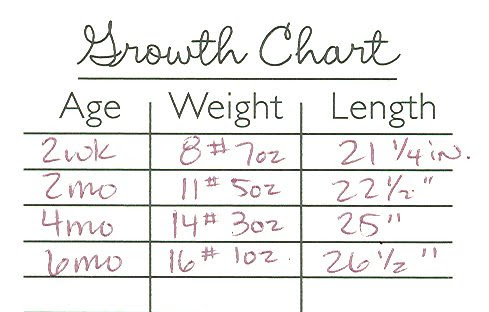 Growth Chart
Age Weight Length
2wk 8# 7oz 21 1/4 in.
2mo 11# 5oz 22 1/2"
4mo 14# 3oz 25"
6mo 16# 1oz. 26 1/2"